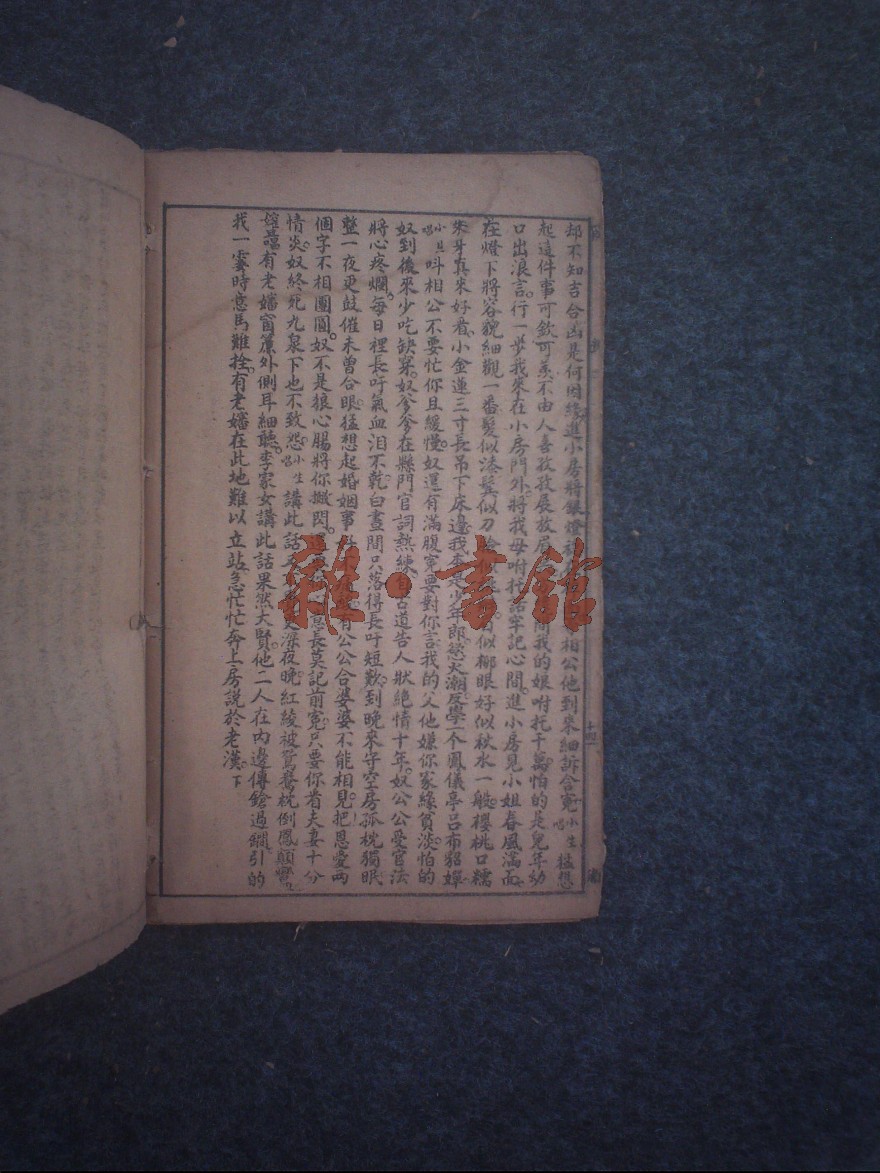 却不知吉合凶是何因緣進小房將銀燈 相公他到來細訴含寃小生唱猛想
起這件事可欽可羨不由人喜孜孜展放眉 我的娘咐托千萬怕的是兒年幼
口出浪言行一步我來在小房門外將我母咐托話牢記心間進小房見小姐春風滿面
在燈下將容貌細觀一番髮似漆鬓似刀 似柳眼好似秋水一般櫻桃口糯
米牙真來好看小金蓮三寸長吊下床邊我本是少年郎慾火潮反學一个鳳儀亭呂布貂嬋
小旦唱呌相公不要忙你且緩慢奴還有滿腹寃要對你言我的父他嫌你家緣貧淡怕的
奴到後來少吃缺穿奴爹爹在縣門官詞熱練自古道告人狀絕情十年奴公公受官法
將心疼爛每日裡長吁氣血泪不乾白晝間只落得長吁短歎到晚來守空房孤枕獨眠
整一夜更鼓催未曾合眼猛想起婚姻事 有公公合婆婆不能相見把恩愛兩
個字不相團圓奴不是狼心腸將你撇閃 長莫記前寃只要你看夫妻十分
情炎奴終死九泉下也不致怨小生唱講此話 深夜晚紅綾被鴛鴦枕倒鳳顛鸞
媪旦唱有老嬸窗簾外側耳細聽李家女講此話果然大賢他二人在內邊傳鎗過鐧引的
我一霎時意馬難拴有老嬸在此地難以立站急忙忙奔上房說於老漢下
十四
雜·書館